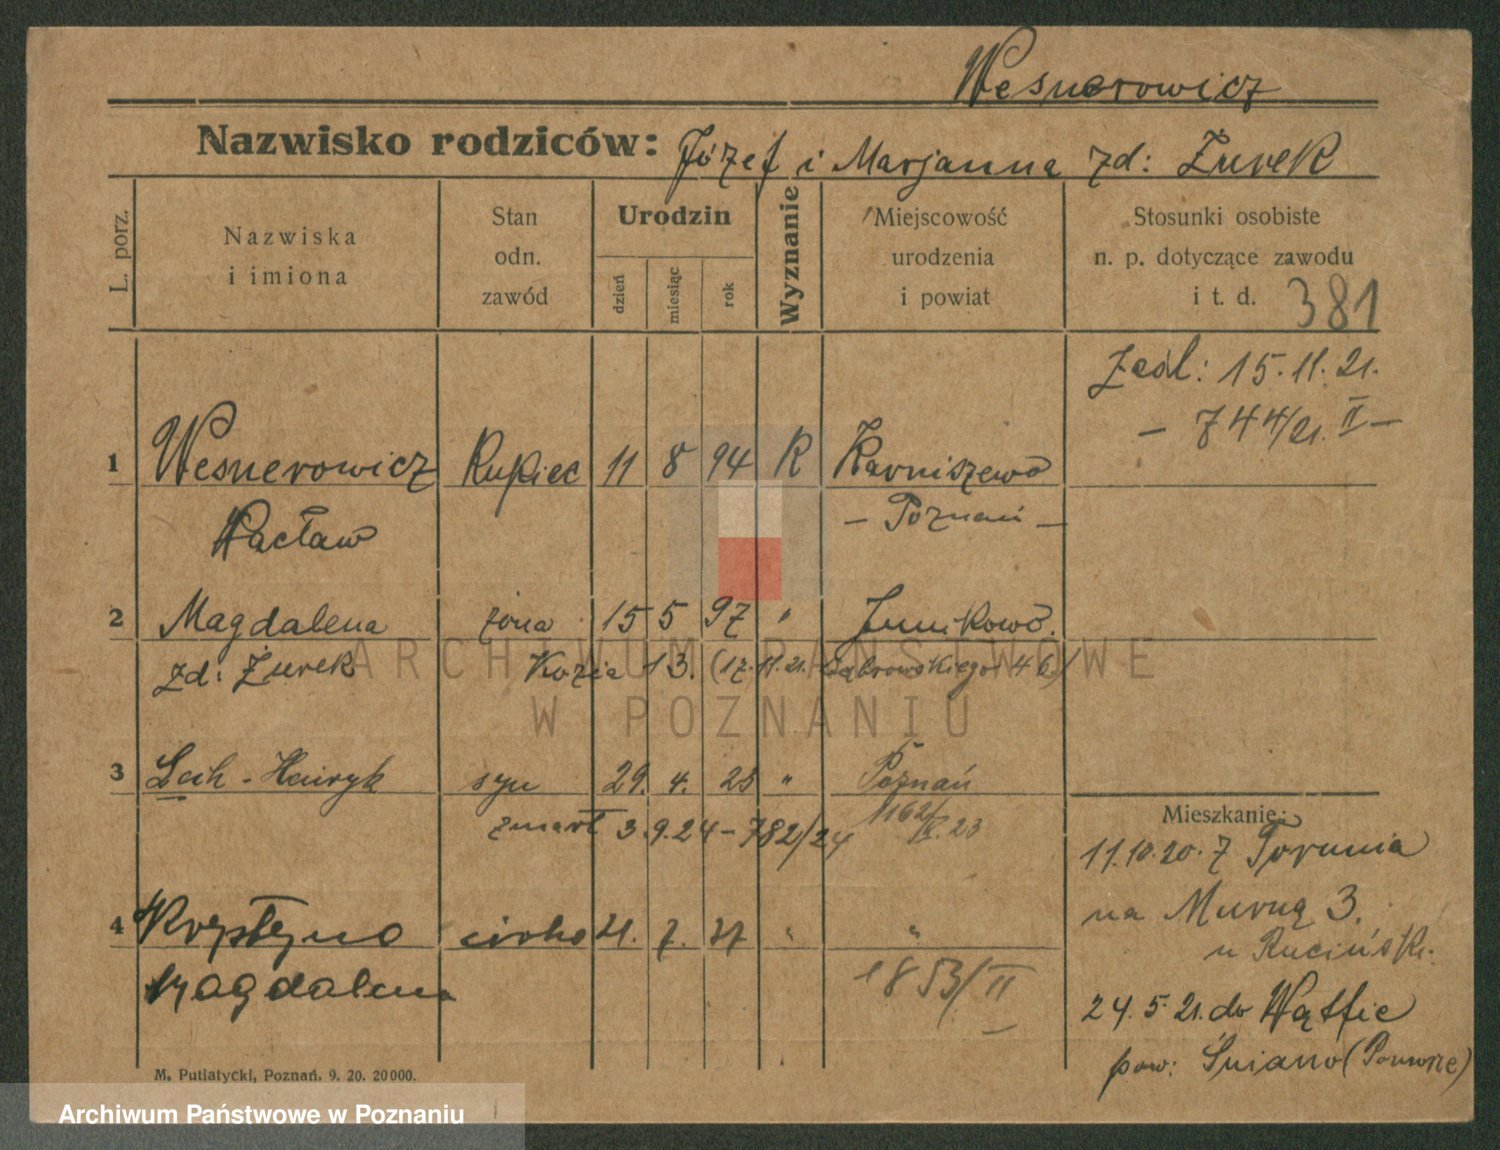 Wesnerowicz
Nazwisko rodziców: Józef i Marjanna zd: Żurek
L. porz.
Nazwiska i imiona
Stan odn. zawód
Urodzin
dzień miesiąc rok
Wyznanie
Miejscowość urodzenia i powiat
Stosunki osobiste n. p. dotyczące zawodu i t. d.
381
Zaśl: 15.11.21.
- 744/21. II -
1 Wesnerowicz Kupiec 11 8 94 K Karniszewo
Wacław - Poznań -
2 Magdalena żona 15 5 97 " Junikowo.
zd: Żurek Kozia 13. (17.11.21. Dąbrowskiego 46)
3 Lech - Henryk syn 29. 4. 23 " Poznań
zmarł 3.9.24 - 782/24 1162/ 23
4 Krystyna córka 21. 7. 27 " "
Magdalena 1853/II
Mieszkanie:
11.10.20. z Torunia
na Murną 3.
u Ruciński.
24.5.21. do
pow:
M. Putiatycki, Poznań. 9. 20. 20000.
ARCHIWUM PAŃSTWOWE
W POZNANIU
Archiwum Państwowe w Poznaniu